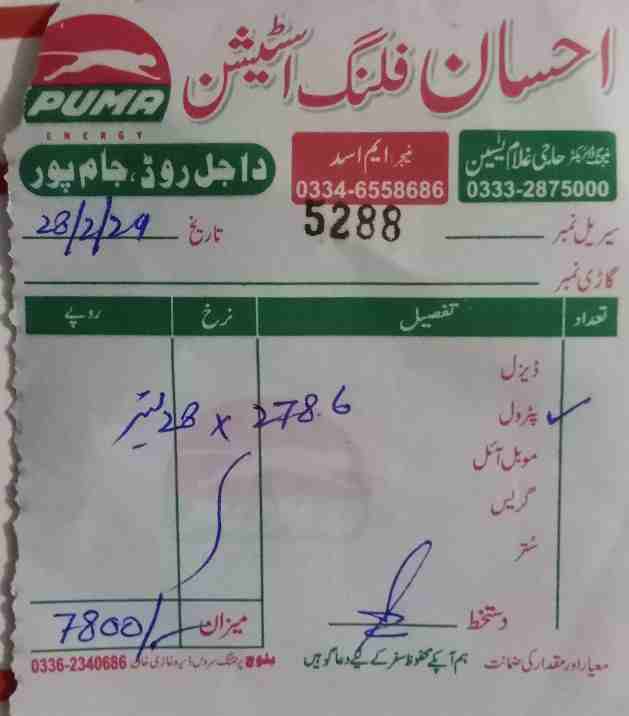 احسان فلنگ اسٹیشن
PUMA
ENERGY
داجل روڈ، جام پور
منیجر ایم اسد
0334-6558686
حاجی غلام یٰسین
0333-2875000
سیریل نمبر 5288 تاریخ 28/2/24
گاڑی نمبر
تعداد تفصیل نرخ روپے
ڈیزل
پٹرول ✓
278.6 x 28 لیٹر
موبل آئل
گریس
دستخط
میزان 7800/-
معیار اور مقدار کی ضمانت ہم آپکے محفوظ سفر کے لیے دعا گو ہیں
بلوچ پرنٹنگ سروس ڈیرہ غازی خان 0336-2340686